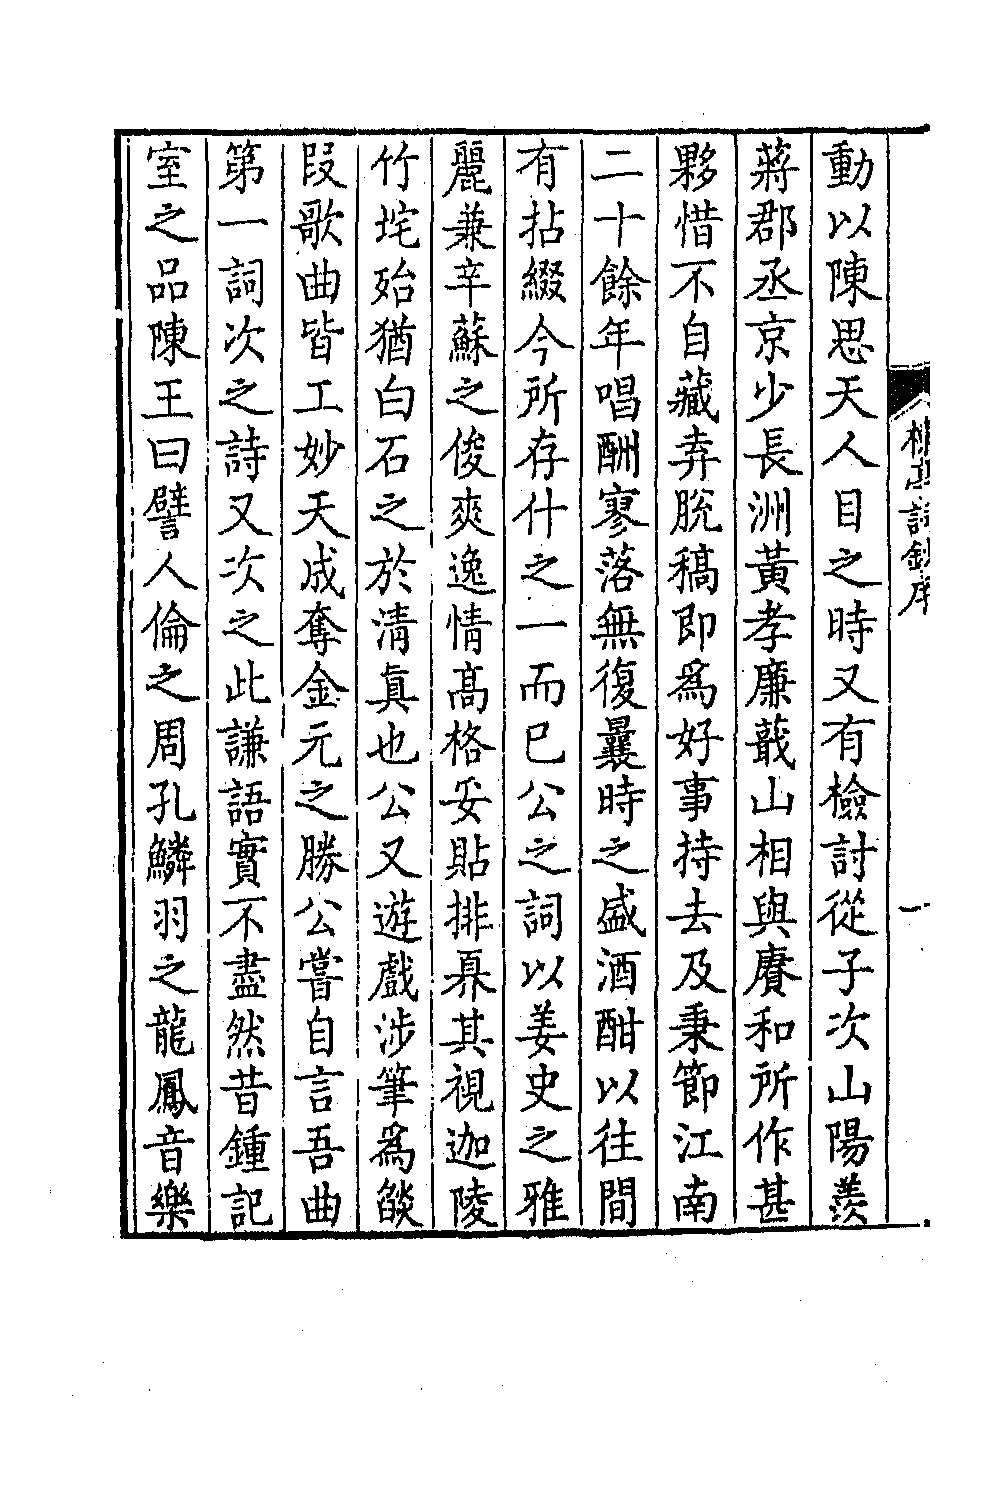 動以陳思天人目之時又有檢討從子次山陽羨
蔣郡丞京少長洲黃孝廉蕺山相與賡和所作甚
夥惜不自藏弆脫稿即爲好事持去及秉節江南
二十餘年唱酬寥落無復曩時之盛酒酣以往間
有拈綴今所存什之一而已公之詞以姜史之雅
麗兼辛蘇之俊爽逸情高格妥貼排奡其視迦陵
竹垞殆猶白石之於清真也公又遊戲涉筆爲燄
段歌曲皆工妙天成奪金元之勝公嘗自言吾曲
第一詞次之詩又次之此謙語實不盡然昔鍾記
室之品陳王曰譬人倫之周孔鱗羽之龍鳳音樂
詞鈔序
一